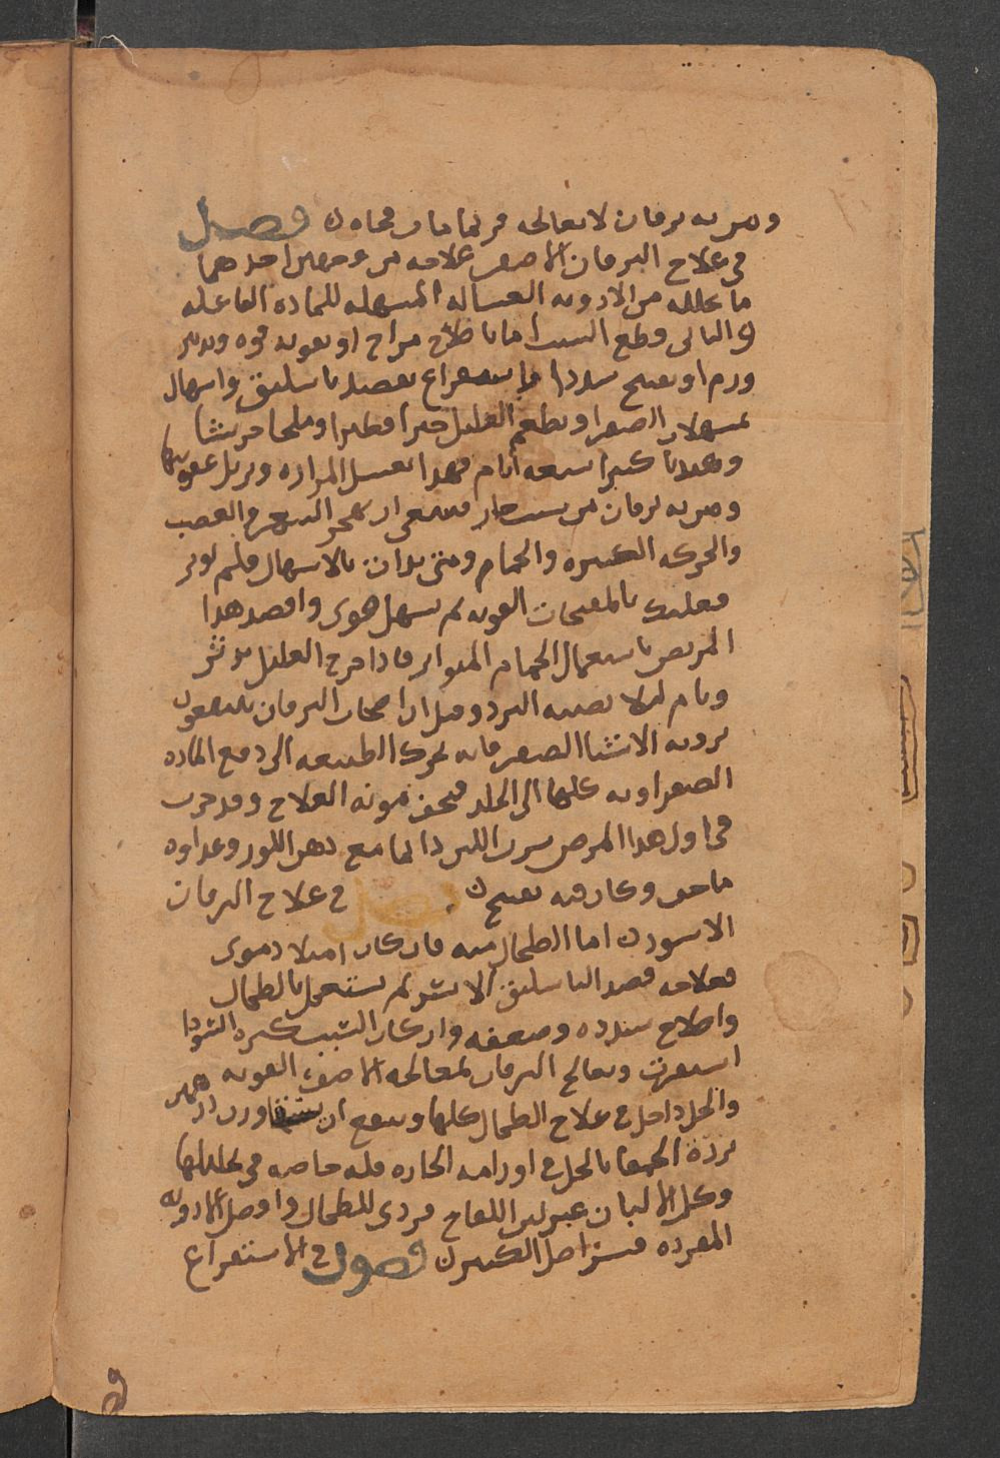 ومن به يرقان لا يعالجه فربما مات فجاه فصل
في علاج اليرقان الاصفر علاجه من وجهين احدهما
ما يحلله من الادويه الغساله المسهله للماده الفاعله
والثاني قطع السبب اما باصلاح مزاج او تقويه قوه وتدبير
ورم او تفتيح سددا واستفراع بفصد باسليق واسهال
بمسهلات الصفرا ويطعم العليل خبرا فطيرا وملحا جريشا
كبيرا سبعه ايام فهذا يغسل المراره ويزيل
ومن به يرقان من سبب حار فينبغي ان يهجر السهر والغضب
والحركه الكثيره والحمام ومتى بدات بالاسهال فلم يوثر
فعليك بالمفتحات القويه ثم تسهل هوى واقصد هذا
المريض باستعمال الحمام المتواتر فاذا خرج العليل تدثر
ونام ليلا يصيبه البرد وقيل ان اصحاب اليرقان ينتفعون
بروية الاشيا الصفر فانه يحرك الطبيعه الى دفع الماده
الصفراويه كلها الى الجلد فيخف مونه العلاج وقد جرب
في اول هذا المرض شرب اللبن دايما مع دهن اللوز وغداوه
ما خف وكان فيه تفتيح فصل في علاج اليرقان
الاسود اما الطحالى منه فان كان امتلا دموى
فعلاجه فصد الباسليق الايسر ثم يستعمل بالطحال
واصلاح سدده وضعفه وان كان السبب كثره السودا
استفرغت ويعالج اليرقان بمعالجه الاصفر القويه
والخل داخل في علاج الطحال كلها وينفع ان ورن درهمين
بزرة الحمقا بالخل في اورامه الحاره فله خاصه في تحليلها
وكل الالبان غير لبن اللقاح فردى للطحال وافضل الادويه
المفرده قشر اصل الكبر فصول في الاستفراع